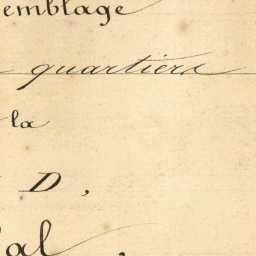 emblage
quartiers
la
D,
al,